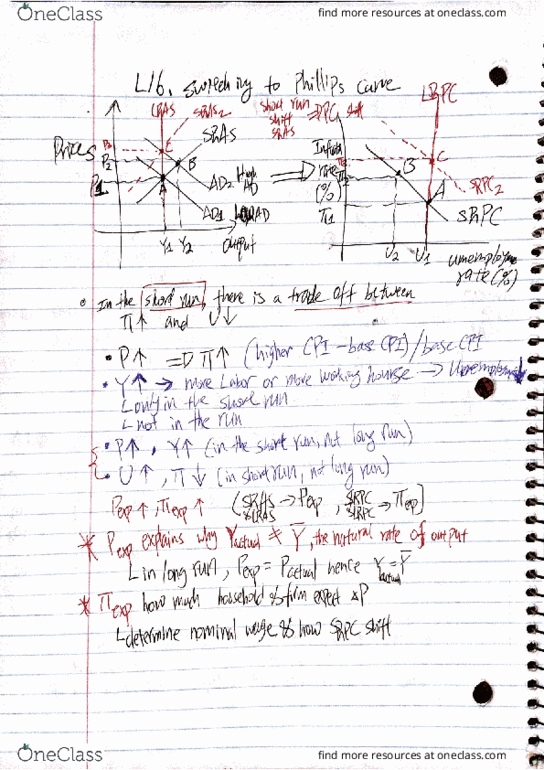 OneClass
find more resources at oneclass.com
L16. switching to Phillips curve
LRAS SRAS2 short run shift SRAS ⇒ PC shift LRPC
SRAS
Prices P3 P2 P1
C B A
AD2 High AD
AD1
Y1 Y2
output
Inflation rate (%)
π2
π1
B C A
SRPC2
SRPC
U2 U1
unemployme rate (%)
• In the short run, there is a trade off between
π↑ and U↓
• P↑ ⇒ π↑ (higher CPI - base CPI) / base CPI
• Y↑ → more Labor or more working hourse → Unemployment↓
L only in the short run
L not in the run
• P↑, Y↑ (in the short run, not long run)
• U↑, π↓ (in short run, not long run)
Pexp↑, πexp↑ (SRAS → Pexp, SRPC → πexp)
* Pexp explains why Yactual ≠ Ȳ, the natural rate of output
L in long run, Pexp = Pactual hence Yactual = Ȳ
* πexp how much household & firm expect ΔP
L determine nominal wage & how SRPC shift
OneClass
find more resources at oneclass.com